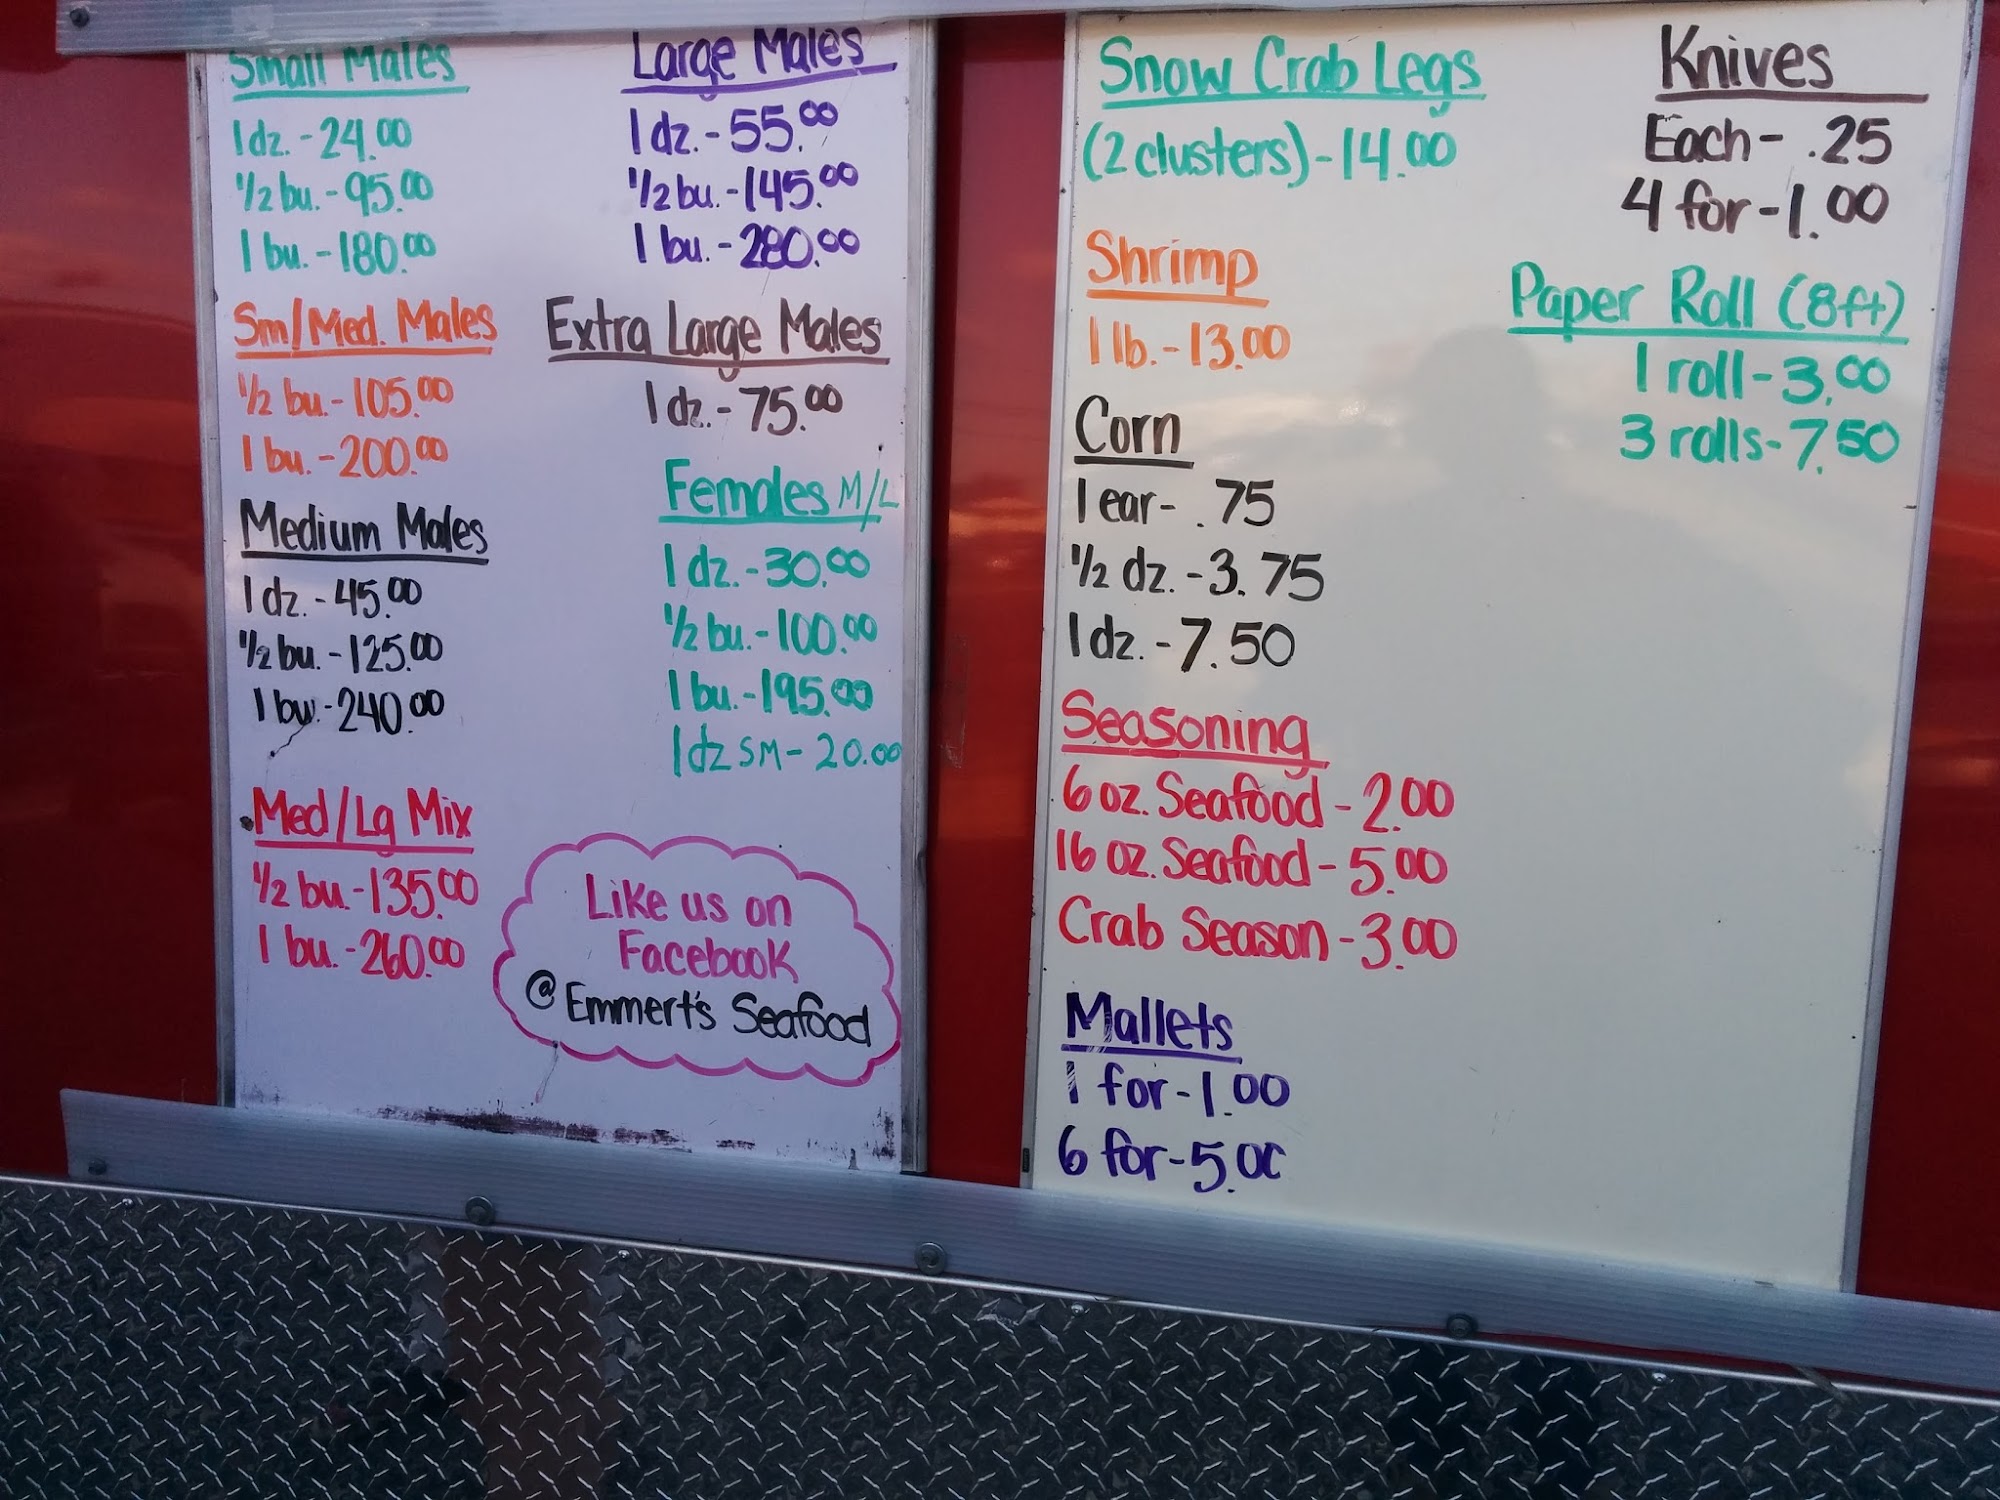 Small Males
1 dz. - 24.00
1/2 bu. - 95.00
1 bu. - 180.00
Sm/Med. Males
1/2 bu. - 105.00
1 bu. - 200.00
Medium Males
1 dz. - 45.00
1/2 bu. - 125.00
1 bu. - 240.00
Med/Lg Mix
1/2 bu. - 135.00
1 bu. - 260.00
Large Males
1 dz. - 55.00
1/2 bu. - 145.00
1 bu. - 280.00
Extra Large Males
1 dz. - 75.00
Females M/L
1 dz. - 30.00
1/2 bu. - 100.00
1 bu. - 195.00
1 dz SM - 20.00
Like us on
Facebook
@ Emmert's Seafood
Snow Crab Legs
(2 clusters) - 14.00
Shrimp
1 lb. - 13.00
Corn
1 ear - .75
1/2 dz. - 3.75
1 dz. - 7.50
Seasoning
6 oz. Seafood - 2.00
16 oz. Seafood - 5.00
Crab Season - 3.00
Mallets
1 for - 1.00
6 for - 5.00
Knives
Each - .25
4 for - 1.00
Paper Roll (8ft)
1 roll - 3.00
3 rolls - 7.50